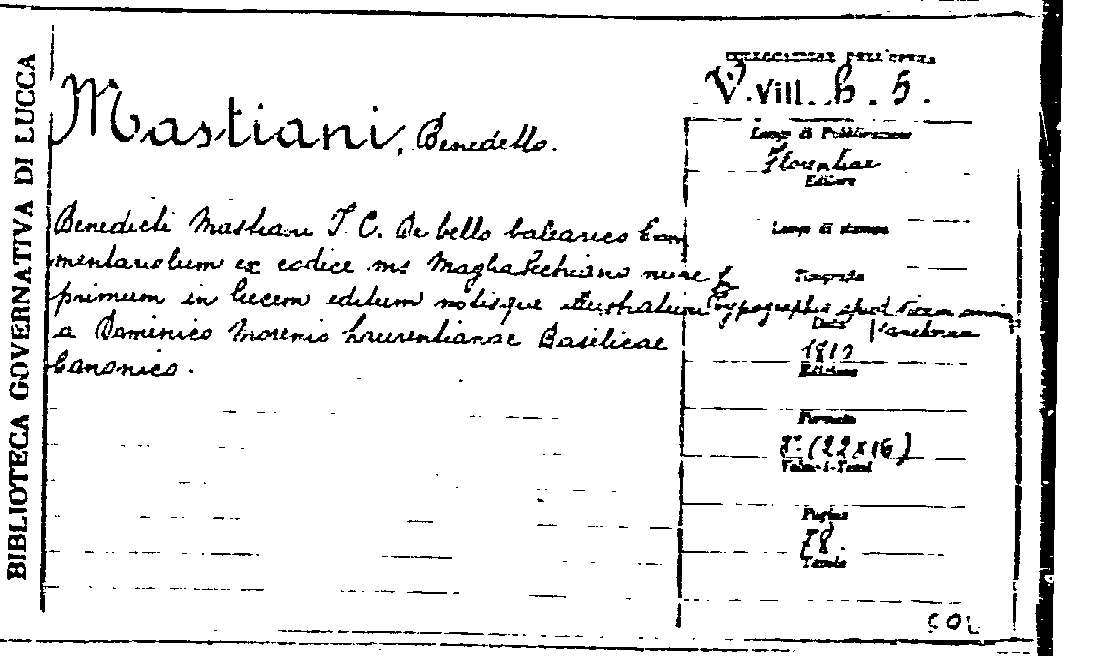 BIBLIOTECA GOVERNATIVA DI LUCCA
Mastiani, Benedetto.
Benedicti Mastiani J. C. De bello balearico Com
mentariolum ex codice ms Magliabechiano nunc
primum in lucem editum notisque illustratum
a Dominico Morenio Laurentianae Basilicae
Canonico.
COLLOCAZIONE DELL'OPERA
V. VIII. b. 5.
Luogo di Pubblicazione
Florentiae
Editore
Luogo di stampa
Tipografia
Typographia apud
Data
Edizione
Formato
8° (22x16)
Volumi-Tomi
Pagine
78.
Tavole
COL